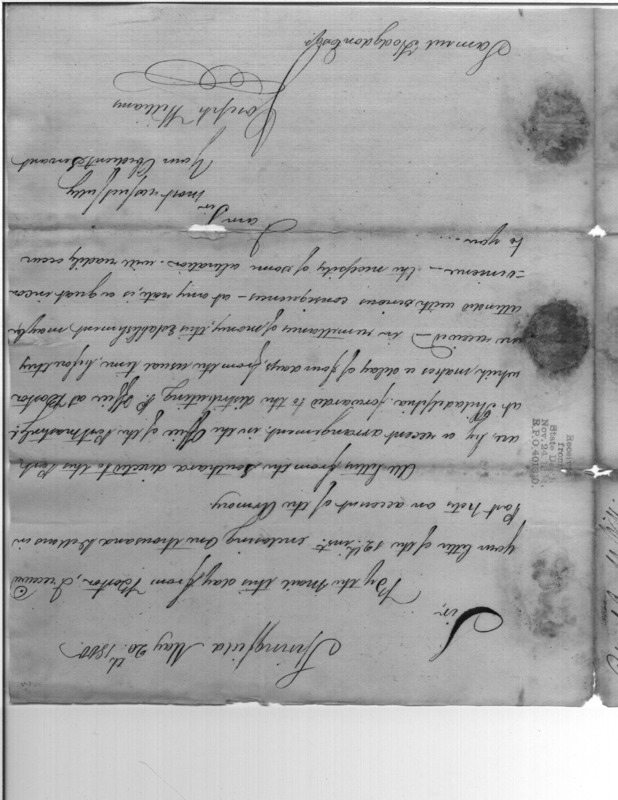 Springfield May 20th 1800.
Sir,
By the Mail this day from Boston, I received
your letter of the 12th inst. enclosing One thousand Dollars in
Post Notes on account of the Armory
All letters from the Southward directed to this Post,
are, by a recent arrangement, in the Office of the Postmaster Gl.
at Philadelphia, forwarded to the distributing P. Office at Boston
which, makes a delay of four days, from the usual time, before they
are received — in remittances of money, this Establishment may be
attended with serious consequences — at any rate, is a great incon
=venience — the necessity of some alteration will readily occur
to you...
I am
Sir
most respectfully
Your Obedient Servant
Joseph Williams
Samuel Hodgdon Esqr.
Received
from
State D
Nov. 24
R.P.O.